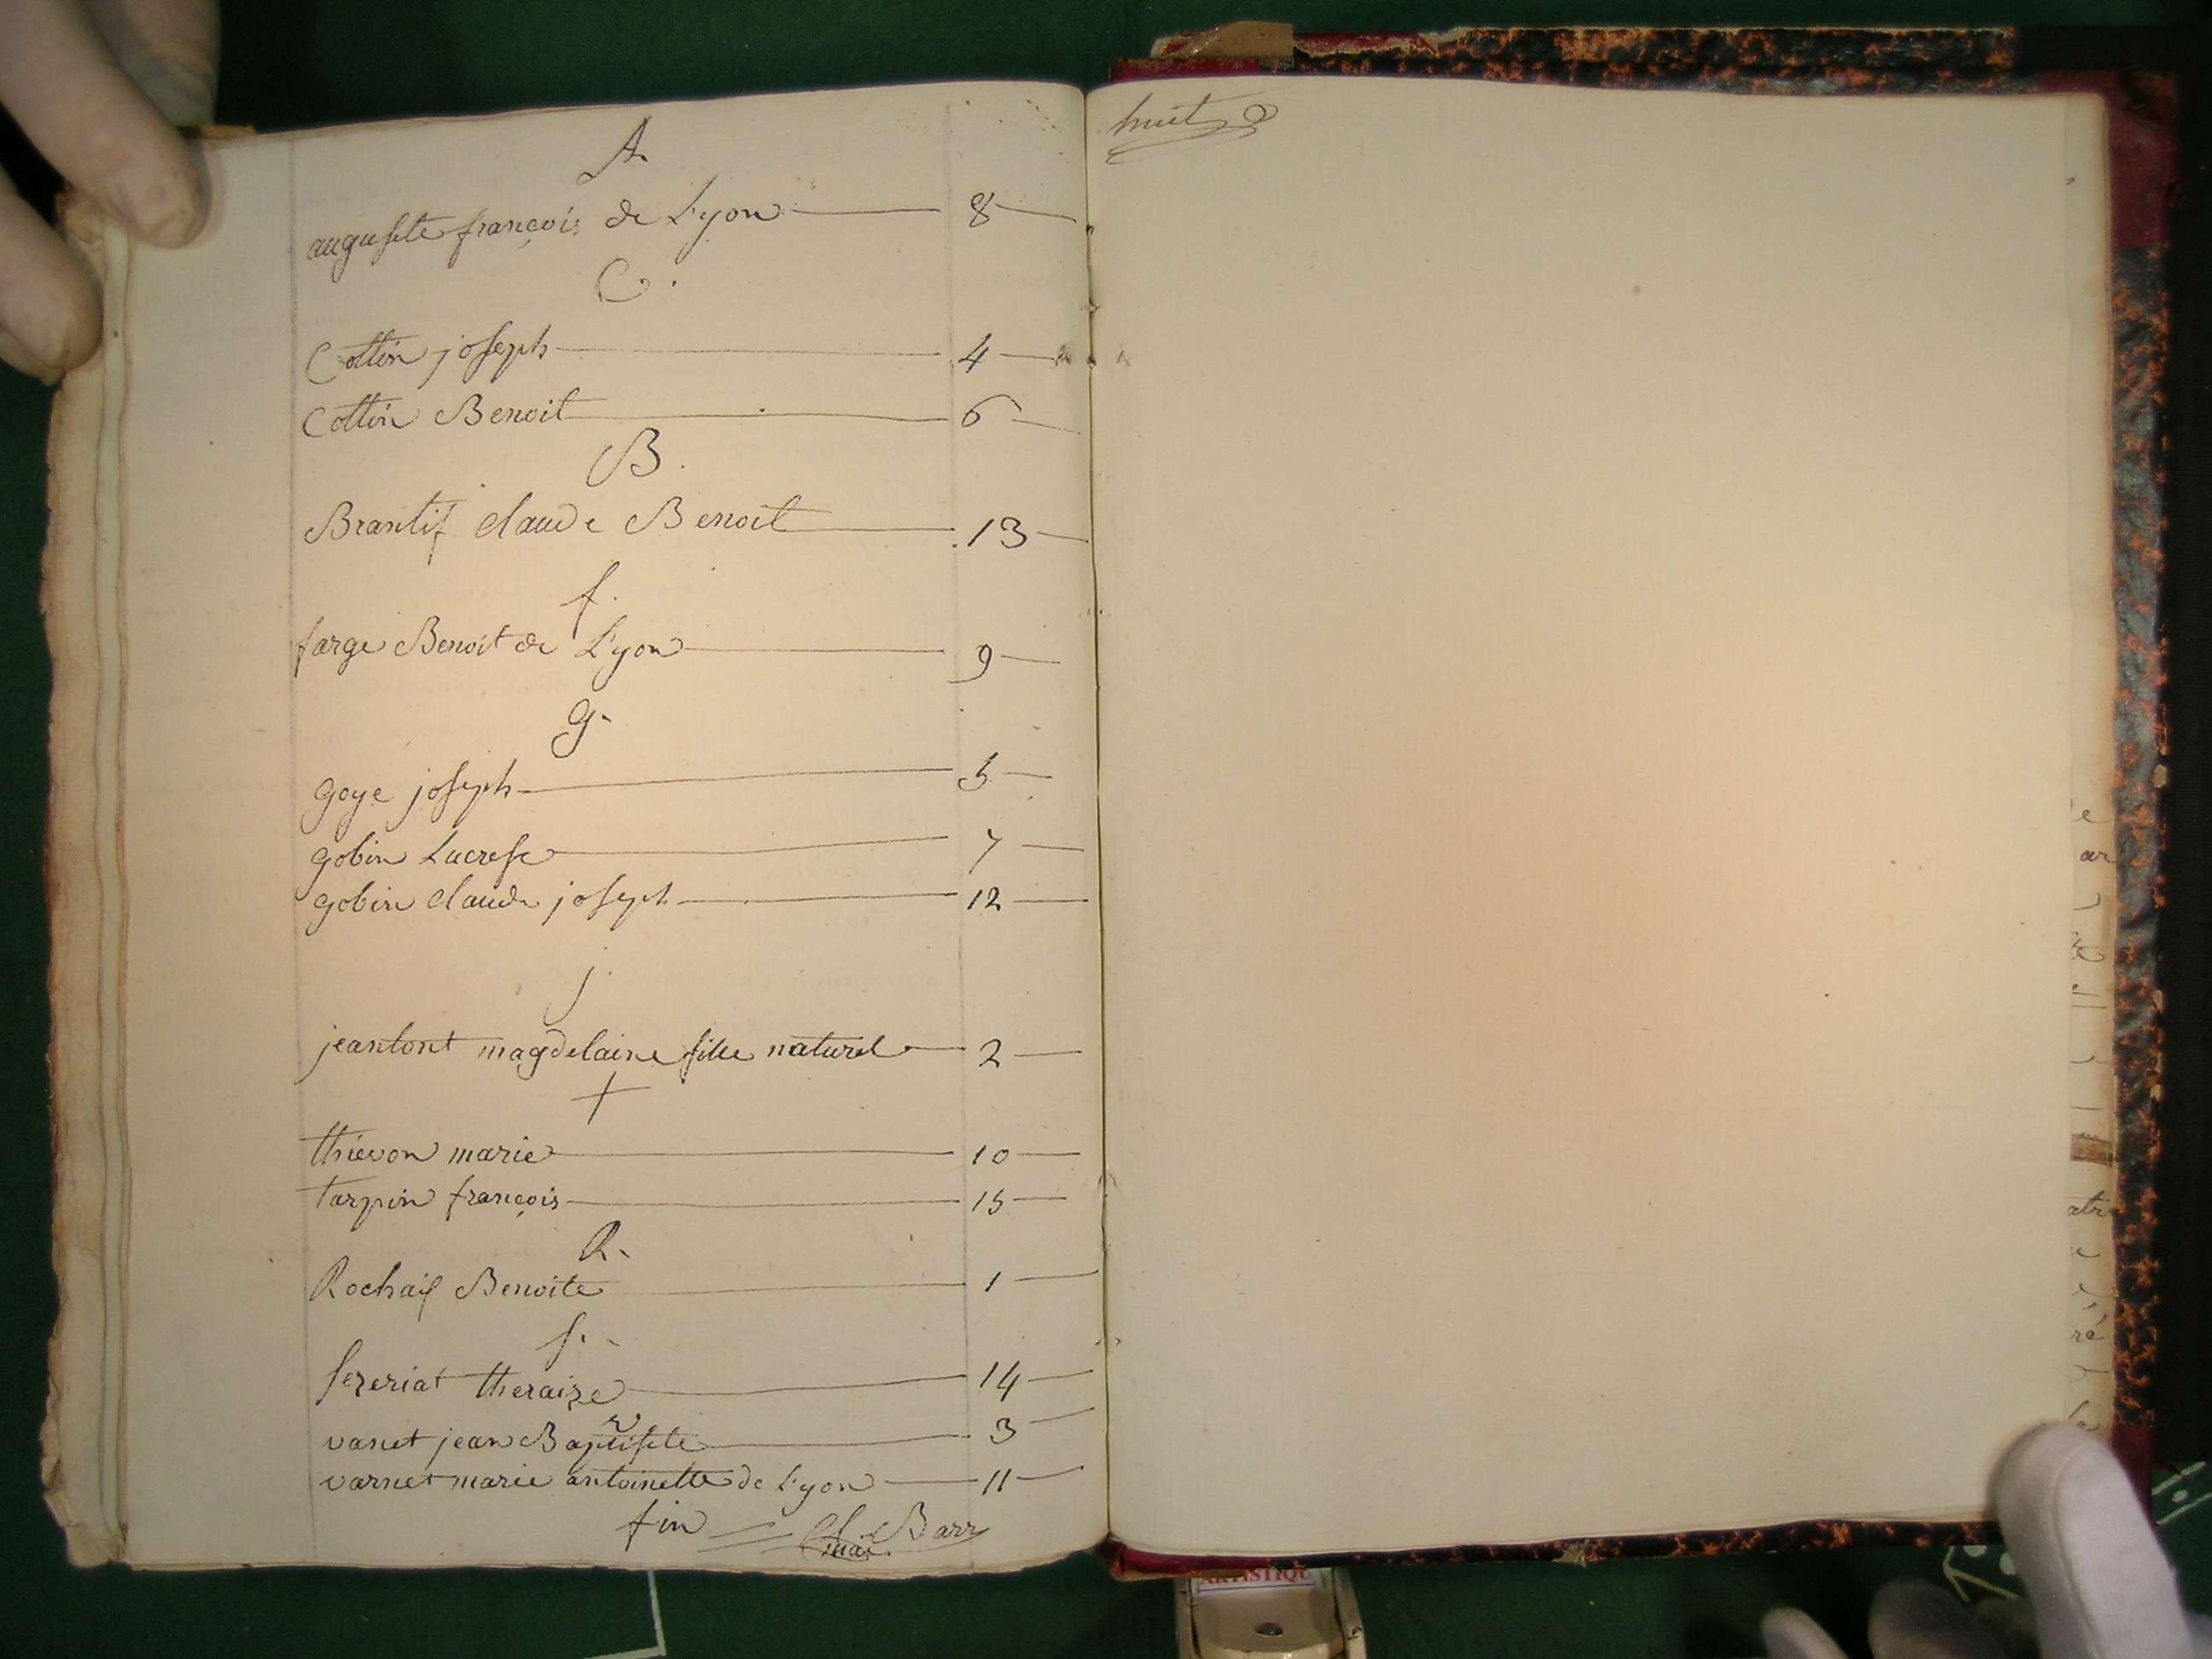 A.
auguste françois de Lyon 8
C.
Cottin joseph 4
Cottin Benoit 6
B.
Brantif claude Benoit 13
f.
farge Benoit de Lyon 9
g.
goye joseph 5
gobin Lucresse 7
gobin claude joseph 12
j.
jeantont magdelaine fille naturel 2
t
thievon marie 10
tarpin françois 15
R.
Rochaix Benoite 1
s.
sereriat theraize 14
v
vanet jean Baptiste 3
varnet marie antoinette de Lyon 11
fin Barr
mai
huit
ARTISTIQU